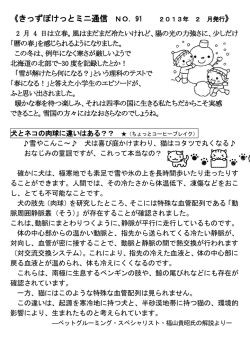 《きっずぽけっとミニ通信 NO.91 2013年 2 月発行》
2 月 4 日は立春。風はまだまだ冷たいけれど、陽の光の力強さに、少しだけ
「暦の春」を感じられるようになりました。
この冬は、例年になく寒さが厳しいようで
北海道の北部で-30 度を記録したとか!
「雪が解けたら何になる?」という理科のテストで
「春になる!」と答えた小学生のエピソードが、
ふと思い出されました。
暖かな春を待つ楽しみ、それは四季の国に生きる私たちだからこそ実感
できること。雪国の方々にはなおさらなのでしょうね。
犬とネコの肉球に違いはある?? ★(ちょっとコーヒーブレイク)
♪雪やこんこ~♪ 犬は喜び庭かけまわり、猫はコタツで丸くなる♪
おなじみの童謡ですが、これって本当なの?
確かに犬は、極寒地でも素足で雪や氷の上を長時間歩いたり走ったりす
ることができます。人間では、その冷たさから体温低下、凍傷などをおこ
し、とても平気ではいられません。
犬の肢先(肉球)を研究したところ、そこには特殊な血管配列である「動
脈周囲静脈叢(そう)」が存在されることが確認されました。
これは、動脈にまとわりつくように、静脈が平行に走行しているものです。
体の中心部からの温かい動脈と、肢先から送られてくる冷たい静脈が、
対向し、血管が密に接することで、動脈と静脈の間で熱交換が行われます
(対交流式交換システム)。これにより、冷たい静脈は温められてから体の
中心部に戻るため、体が冷えないというしくみなのです。
これらは、南極に生息するペンギンの肢や、鯨の尾びれなどにも存在が
確認されています。
一方、猫にはこのような特殊な血管配列は見られません。
この違いは、起源を寒冷地に持つ犬と、半砂漠地帯に持つ猫の、環境の影
響により、生まれたものと考えられています。
―ペットグルーミング・スペシャリスト・福山貴昭氏の解説より―